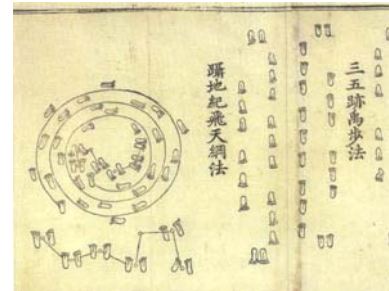 三五跡禹步法
躡地紀飛天綱法